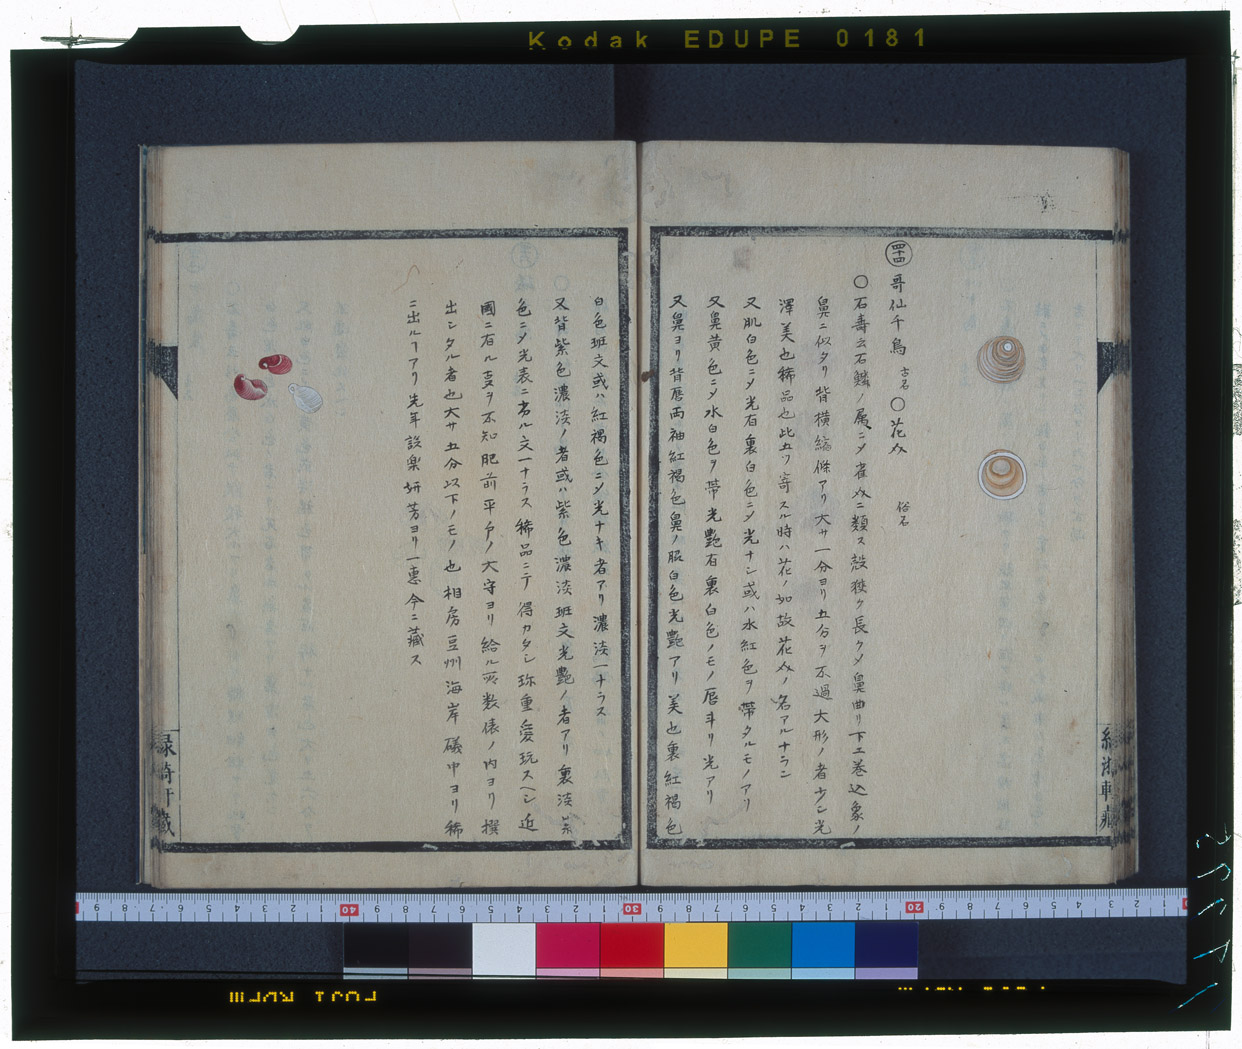 Kodak EDUPE 0181
四十四
哥仙千鳥 古名 〇花 俗名
〇石壽云石鱗ノ属ニメ雀 ニ類ス殻狭ク長クメ鼻曲リ下エ巻込象ノ
鼻ニ似タリ背横 條アリ大サ一分ヨリ五分ヲ不過大形ノ者少シ光
澤美也稀品也此五ツ寄スル時ハ花ノ如故花 ノ名アルナラン
又肌白色ニメ光有裏白色ニメ光ナシ或ハ水紅色ヲ帶タルモノアリ
又鼻黄色ニメ水白色ヲ帶光艶有裏白色ノモノ唇斗リ光アリ
又鼻ヨリ背唇両袖紅褐色鼻ノ 白色光艶アリ美也裏紅褐色
白色班文或ハ紅褐色ニメ光ナキ者アリ濃淡一ナラス
又背紫色濃淡ノ者或ハ紫色濃淡班文光艶ノ者アリ裏淡紫
色ニメ光表ニ劣ル文一ナラス稀品ニテ得カタシ珎重愛玩スヘシ近
國ニ有ル ヲ不知肥前平戸ノ大守ヨリ給ル所数俵ノ内ヨリ撰
出シタル者也大サ五分以下ノモノ也相房豆州海岸礒中ヨリ稀
ニ出ルヿアリ先年設楽妍芳ヨリ一恵今ニ藏ス
緑漪軒藏